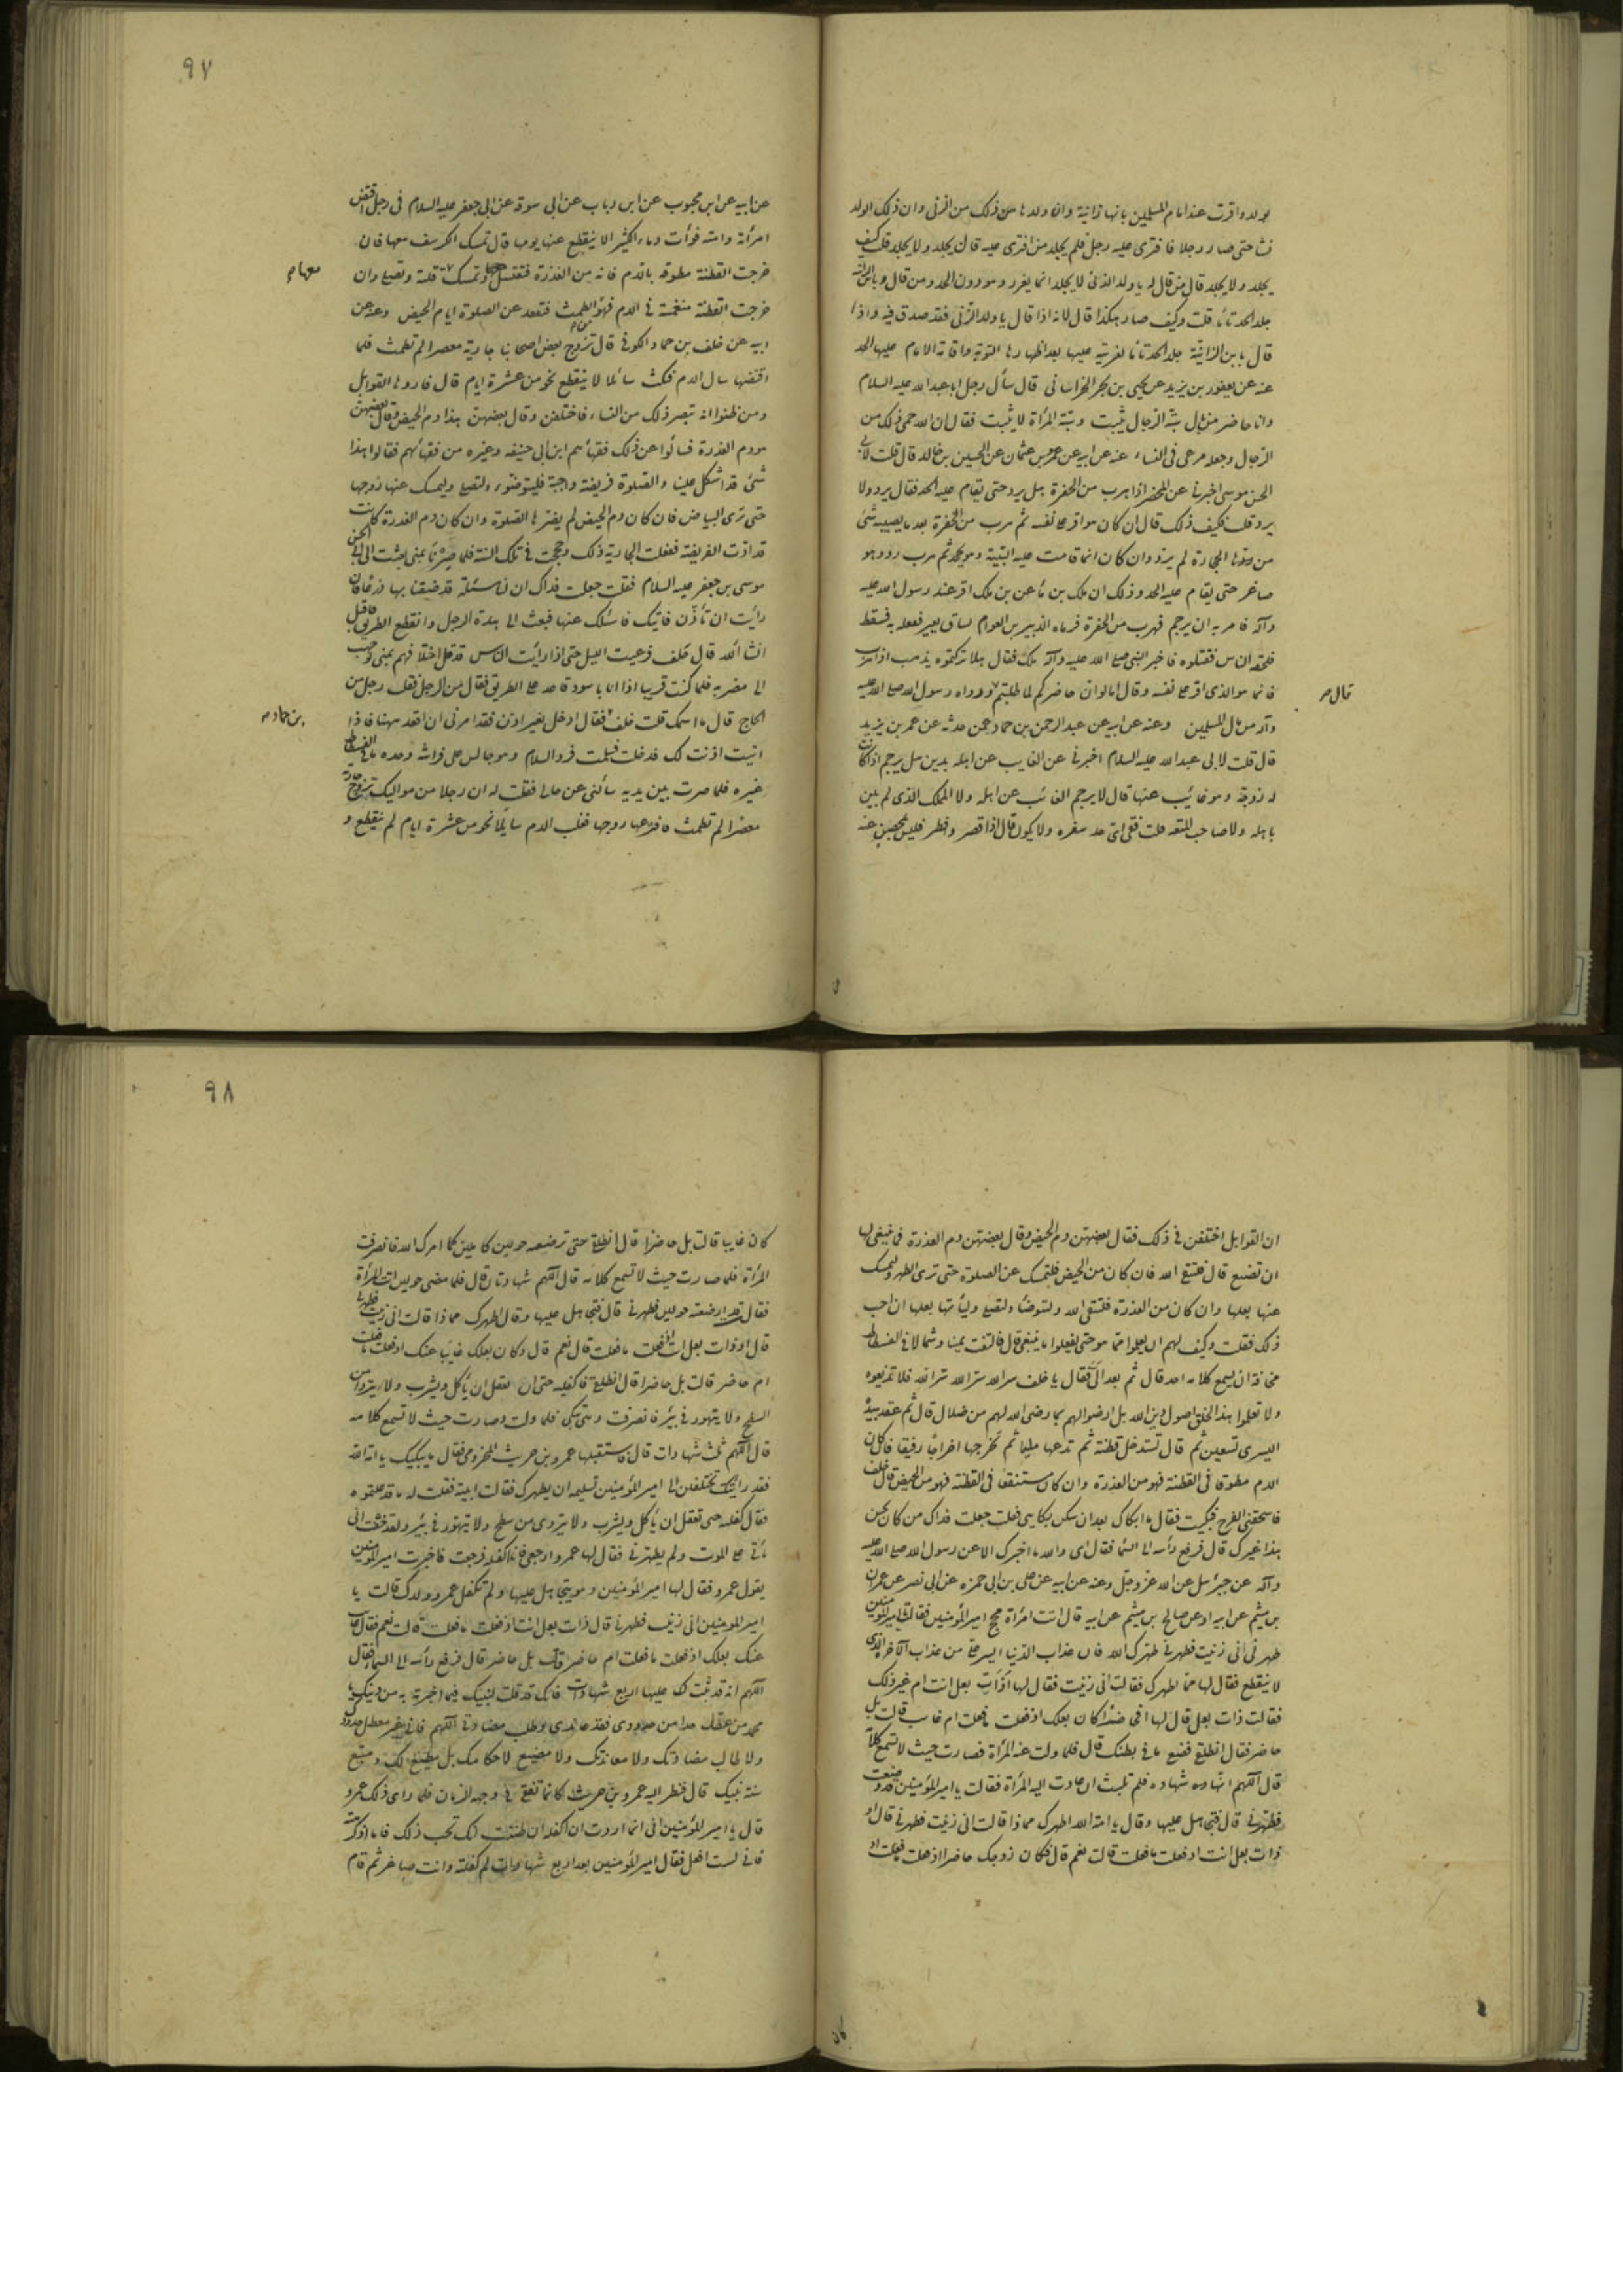 بولد واقرت عند امام المسلمين بانها زانية وان ولدها من ذلك من الزنى وان ذلك الولد
نشا حتى صار رجلا فافترى عليه رجل فلم يجلد من افترى عليه قال يجلد ولا يجلد قلت كيف
يجلد ولا يجلد قال من قال له يا ولد الزنى لا يجلد انما يعزر وهو دون الحد ومن قال يا بن الزانية
جلد الحد تاما قلت وكيف صار هكذا قال لانه اذا قال يا ولد الزنى فقد صدق فيه واذا
قال يا بن الزانية جلد الحد تاما لفريته عليها بعد اظهارها التوبة واقامة الامام عليها الحد
عنه عن يعقوب بن يزيد عن يحيى بن بحر الخراسانى قال سأل رجل ابا عبد الله عليه السلام
وانا حاضر
الرجال وجعله مرعى فى النساء عنه عن ابيه عن عمرو بن عثمان عن الحسين بن خالد قال قلت لابى
الحسن موسى اخبرنى عن المحصن اذا هرب من الحفرة هل يرد حتى يقام عليه الحد فقال يرد ولا
يرد قلت فكيف ذلك قال ان كان هو اقر على نفسه ثم هرب من الحفرة بعد ما يصيبه شئ
من رميها الحجارة لم يرد وان كان انما قامت عليه البينة وهو يجحد ثم هرب رد وهو
صاغر حتى يقام عليه الحد وذلك ان ملك بن ماعز بن ملك اقر عند رسول الله عليه
وآله فامر به ان يرجم فهرب من الحفرة فرماه الزبير بن العوام بساق بعير فعقله به فسقط
فلحقه الناس فقتلوه فاخبر النبى صلى الله عليه وآله بذلك فقال هلا تركتموه يذهب اذا هرب
فانما هو الذى اقر على نفسه وقال اما لو ان حاضركم لما طلبتم ووداه رسول الله صلى الله عليه
قال
وآله من مال المسلمين وعنه عن ابيه عن عبد الرحمن بن حماد عمن حدثه عن عمر بن يزيد
قال قلت لابى عبد الله عليه السلام اخبرنى عن الغايب عن اهله يزنى هل يرجم اذا كانت
له زوجة وهو غائب عنها قال لا يرجم الغائب عن اهله ولا المملك الذى لم يبن
باهله ولا صاحب المتعة قلت ففى اى حد سفره ولا يكون قال اذا قصر وفطر فليس بمحصن عنه
٩٧
عن ابيه عن ابن محبوب عن ابن رياب عن ابى سورة عن ابى جعفر عليه السلام فى رجل اقتض
امرأته وامته فرأت دماء كثيرا لا ينقطع عنها يوما قال تمسك الكرسف معها فان
خرجت القطنة مطوقة بالدم فانه من العذرة فتغتسل وتمسك قطنة وتصلى وان
معها
خرجت القطنة منغمسة فى الدم فهو من الطمث فتقعد عن الصلوة ايام الحيض وعنه عن
ابيه عن خلف بن حماد الكوفى قال تزوج بعض اصحابنا جارية معصرا لم تطمث فلما
اقتضها سال الدم فمكث سائلا لا ينقطع نحو من عشرة ايام قال فاروها القوابل
ومن ظنوا انه تبصر ذلك من النساء فاختلفن وقال بعضهن هذا دم الحيض وقال بعضهن
هو دم العذرة فسألوا عن ذلك فقهائهم ابن ابى حنيفه وغيره من فقهائهم فقالوا هذا
شئ قد اشكل علينا والصلوة فريضة واجبة فليتوضئ ولتصلى وليمسك عنها زوجها
حتى ترى البياض فان كان دم الحيض لم يضرها الصلوة وان كان دم العذرة كانت
قد ادت الفريضة ففعلت الجارية ذلك وحججت فى تلك السنة فلما صرنا بمنى بعثت الى ابى الحسن
موسى بن جعفر عليه السلام فقلت جعلت فداك ان لنا مسئلة قد ضقنا بها ذرعا فان
رأيت ان تأذن فاتيك فاسئلك عنها فبعث الى هدأة الرجل وانقطع الطريق فاقبل
انشاء الله قال خلف فرعيت الليل حتى اذا رأيت الناس قد قل اختلافهم بمنى توجهت
الى مضربه فلما كنت قريبا اذا انا باسود قاعد على الطريق فقال من الرجل فقلت رجل من
الحاج قال ما اسمك قلت خلف فقال ادخل بغير اذن فقد امرنى ان اقعد ههنا فاذا
بن حماد
اتيت اذنت لك فدخلت فسلمت فرد السلام وهو جالس على فراشه وحده ما فى الفسطاط
غيره فلما صرت بين يديه سألنى عن حالى فقلت له ان رجلا من مواليك تزوج جارية
معصرا لم تطمث فافترعها زوجها فغلب الدم سايلا نحو من عشرة ايام لم ينقطع و
ان القوابل اختلفن فى ذلك فقال بعضهن دم الحيض وقال بعضهن دم العذرة فما ينبغى لها
ان تصنع قال فلتتق الله فان كان من الحيض فلتمسك عن الصلوة حتى ترى الطهر وليمسك
عنها بعلها وان كان من العذرة فلتتقى الله ولتتوضأ ولتصلى ويأتها بعلها ان احب
ذلك فقلت وكيف لهم ان يعلموا مما هو حتى يفعلوا ما ينبغى قال فالتفت يمينا وشمالا فى الفسطاط
مخافة ان يسمع كلامه احد قال ثم بعد الى فقال يا خلف سر الله سر الله سر الله فلا تذيعوه
ولا تعلموا هذا الخلق اصول دين الله بل ارضوا لهم بما رضى الله لهم من ضلال قال ثم عقد بيده
اليسرى تسعين ثم قال تستدخل قطنة ثم تدعها مليا ثم تخرجها اخراجا رفيقا فان كان
الدم مطوقا فى القطنة فهو من العذرة وان كان مستنقعا فى القطنة فهو من الحيض قال خلف
فاستخفنى الفرح فبكيت فقال ما ابكاك بعد ان سكن بكايى فقلت جعلت فداك من كان يحسن
هذا غيرك قال فرفع رأسه الى السماء فقال اى والله ما اخبرك الا عن رسول الله صلى الله عليه
وآله عن جبرئيل عن الله عز وجل وعنه عن ابيه عن على بن ابى حمزه عن ابى بصر عن عمران
بن ميثم عن ابيه او عن صالح بن ميثم عن ابيه قال اتت امرأة مجح امير المؤمنين فقالت يا امير المؤمنين
طهرنى انى زنيت فطهرنى طهرك الله فان عذاب الدنيا ايسر على من عذاب الآخرة الذى
لا ينقطع فقال لها مما اطهرك فقالت انى زنيت فقال لها اذات بعل انت ام غير ذلك
فقالت ذات بعل قال لها افحاضرا كان بعلك اذ فعلت ما فعلت ام غايب قالت بل
حاضر فقال انطلقى فضعى ما فى بطنك قال فلما ولت عنه المرأة فصارت حيث لا تسمع كلامه
قال اللهم انها شهادة فلم تلبث ان عادت اليه المرأة فقالت يا امير المؤمنين قد وضعت
فطهرنى قال فتجاهل عليها وقال يا امة الله اطهرك مما ذا قالت انى زنيت فطهرنى قال او
ذات بعل انت اذ فعلت ما فعلت قالت نعم قال فكان زوجك حاضرا اذ فعلت ما فعلت او
٩٨
كان غايبا قالت بل حاضرا قال انطلقى حتى ترضعه حولين كاملين كما امرك الله فانصرفت
المرأة فلما صارت حيث لا تسمع كلامه قال اللهم شهادتان قال فلما مضى حولين اتت المرأة
فقالت قد ارضعته حولين فطهرنى قال فتجاهل عليها وقال اطهرك مما ذا قالت انى زنيت فطهرنى
قال او ذات بعل انت اذ فعلت ما فعلت قال نعم قال وكان بعلك غايبا عنك اذ فعلت ما فعلت
ام حاضر قالت بل حاضرا قال انطلقى فاكفليه حتى ان يعقل ان يأكل ويشرب ولا يتردى من
السطح ولا يتهور فى بئر فانصرفت وهى تبكى فلما ولت وصارت حيث لا تسمع كلامه
قال اللهم ثلث شهادات قال فاستقبلها عمرو بن حريث المخزومى فقال ما يبكيك يا امة الله
فقد رايتك تختلفين الى امير المؤمنين تسليه ان يطهرك فقالت اتيته فقلت له ما قد علمتموه
فقال اكفليه حتى تعقل ان يأكل ويشرب ولا يتردى من سطح ولا يتهور فى بئر ولقد خفت ان
يأتى على الموت ولم يطهرنى فقال لها عمرو ارجعى فانا اكفله فرجعت فاخبرت امير المؤمنين
بقول عمرو فقال لها امير المؤمنين وهو يتجاهل عليها ولم تكفل عمرو ولدك قالت يا
امير المؤمنين انى زنيت فطهرنى قال ذات بعل انت اذ فعلت ما فعلت قالت نعم فقال غايب
عنك بعلك اذ فعلت ما فعلت ام حاضر قالت بل حاضر قال فرفع رأسه الى السماء فقال
اللهم انه قد ثبت لك عليها اربع شهادات فانك قد قلت لنبيك فيما اخبرته به من دينك يا
محمد من عطل حدا من حدودى فقد عاندنى وطلب مضادتى اللهم فانى غير معطل حدودك
ولا طالب مضادتك ولا معاندتك ولا مضيع لاحكامك بل مطيع لك ومتبع
سنة نبيك قال فنظر اليه عمرو بن حريث فكانما تفقى فى وجهه الرمان فلما راى ذلك عمرو
قال يا امير المؤمنين انى انما اردت ان اكفله ان ظننت انك تحب ذلك فاما اذ كرهته
فانى لست افعل فقال امير المؤمنين بعد اربع شهادات لم كفلته وانت صاغر ثم قام